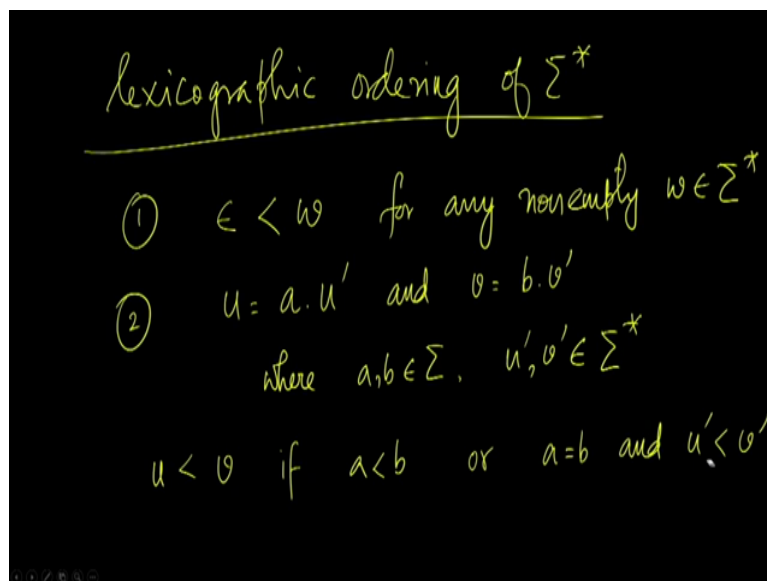 lexicographic ordering of Σ*
① ϵ < w for any nonempty w ∈ Σ*
② u = a.u' and v = b.v'
where a,b ∈ Σ, u',v' ∈ Σ*
u < v if a<b or a=b and u' < v'